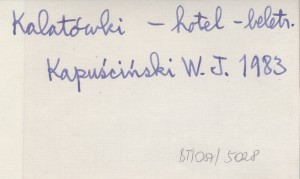 Kalatówki - hotel - beletr.
Kapuściński W. J. 1983
BT/OA/5028